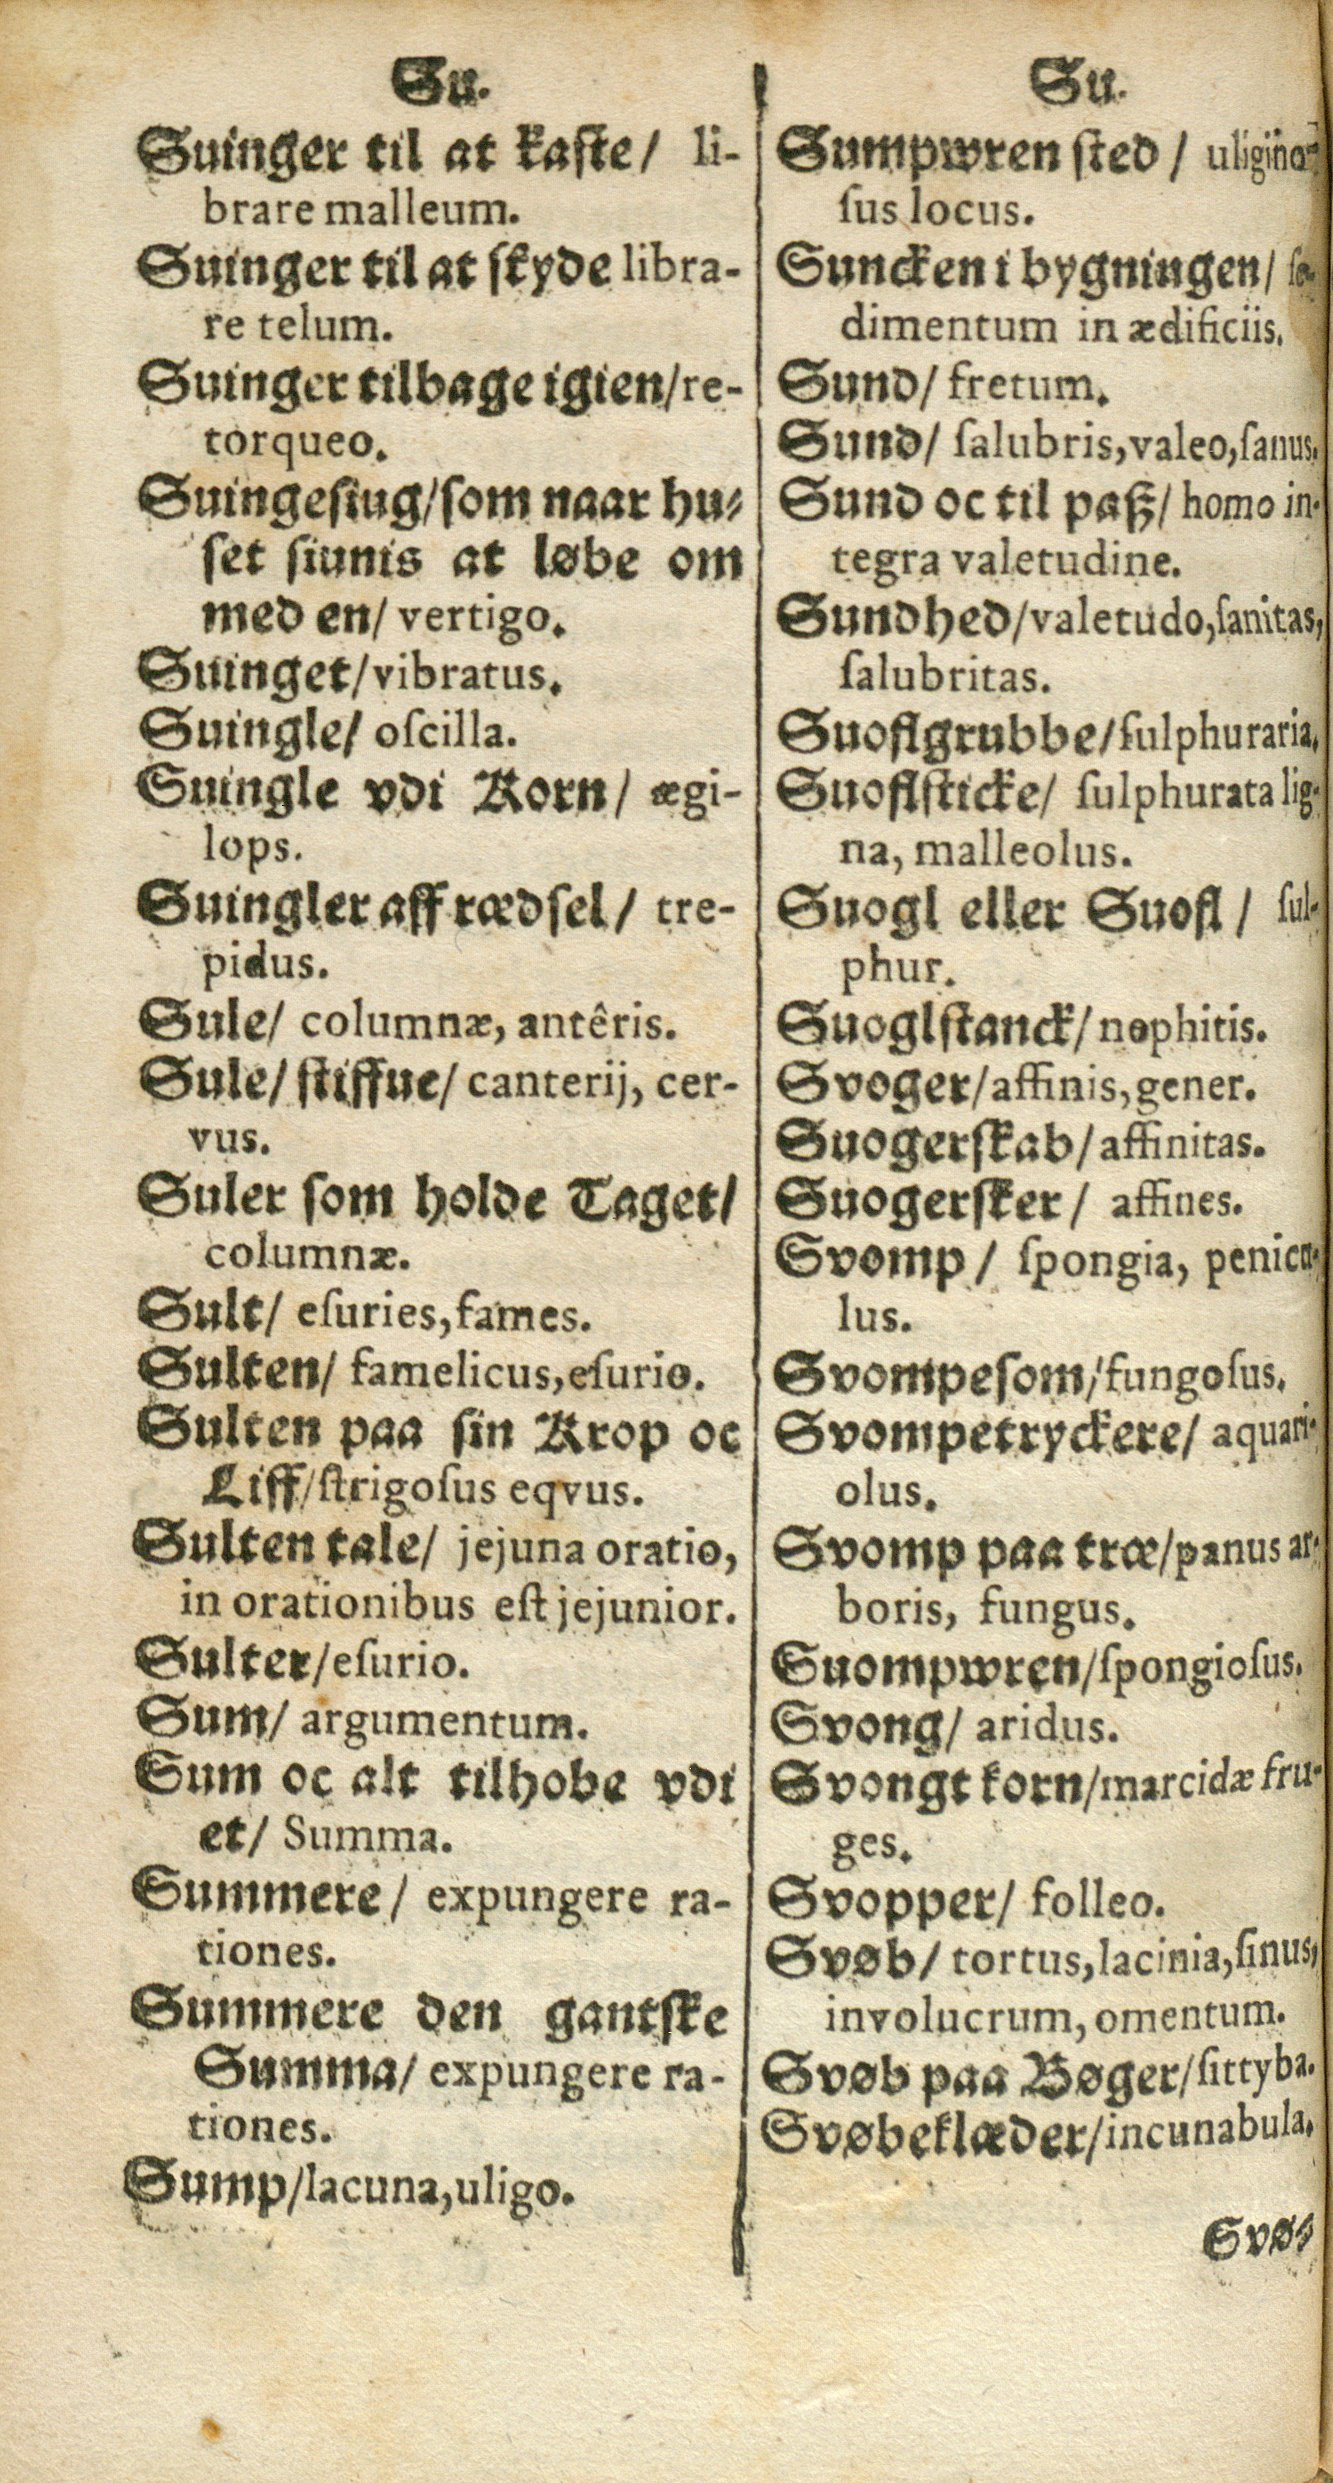 Su.
Suinger til at kaste/ li-
brare malleum.
Suinger til at skyde libra-
re telum.
Suinger tilbage igien/re-
torqueo.
Suingesiug/som naar hu-
set siunis at løbe om
med en/ vertigo.
Suinget/vibratus.
Suingle/ oſcilla.
Suingle vdi Korn/ ægi-
lops.
Suingler aff rædsel/ tre-
pidus.
Sule/ columnæ, antêris.
Sule/ stiffue/ canterij, cer-
vus.
Suler som holde Taget/
columnæ.
Sult/ eſuries, fames.
Sulten/ famelicus, eſurio.
Sulten paa sin Krop oc
Liff/ſtrigoſus eqvus.
Sulten tale/ jejuna oratio,
in orationibus eſt jejunior.
Sulter/eſurio.
Sum/ argumentum.
Sum oc alt tilhobe vdi
et/ Summa.
Summere/ expungere ra-
tiones.
Summere den gantske
Summa/ expungere ra-
tiones.
Sump/lacuna, uligo.
Su.
Sumpwren sted/ uligino-
ſus locus.
Suncken i bygningen/ ſe-
dimentum in ædificiis.
Sund/ fretum.
Sund/ ſalubris, valeo, ſanus.
Sund oc til paß/ homo in-
tegra valetudine.
Sundhed/valetudo, ſanitas,
ſalubritas.
Suoflgrubbe/ſulphuraria.
Suoflsticke/ ſulphurata lig-
na, malleolus.
Suogl eller Suofl/ ſul-
phur.
Suoglstanck/nophitis.
Svoger/affinis, gener.
Suogerskab/affinitas.
Suogersker/ affines.
Svomp/ ſpongia, penicu-
lus.
Svompesom/fungoſus.
Svompetryckere/ aquari-
olus.
Svomp paa træ/panus ar-
boris, fungus.
Suompwren/ſpongioſus.
Svong/ aridus.
Svongt korn/marcidæ fru-
ges.
Svopper/ folleo.
Svøb/ tortus, lacinia, ſinus,
involucrum, omentum.
Svøb paa Bøger/ſittyba.
Svøbeklæder/incunabula.
Svø-